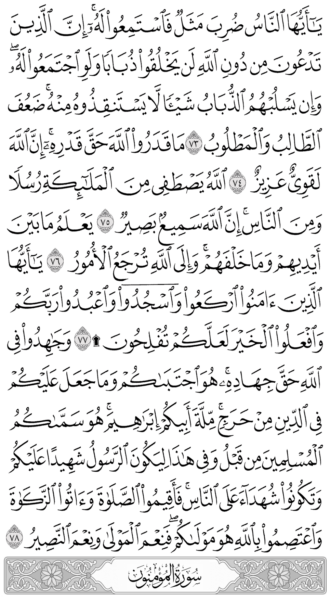 يَٰٓأَيُّهَا ٱلنَّاسُ ضُرِبَ مَثَلٌ فَٱسْتَمِعُوا۟ لَهُۥٓ إِنَّ ٱلَّذِينَ
تَدْعُونَ مِن دُونِ ٱللَّهِ لَن يَخْلُقُوا۟ ذُبَابًا وَلَوِ ٱجْتَمَعُوا۟ لَهُۥ
وَإِن يَسْلُبْهُمُ ٱلذُّبَابُ شَيْـًٔا لَّا يَسْتَنقِذُوهُ مِنْهُ ضَعُفَ
ٱلطَّالِبُ وَٱلْمَطْلُوبُ ٧٣ مَا قَدَرُوا۟ ٱللَّهَ حَقَّ قَدْرِهِۦٓ إِنَّ ٱللَّهَ
لَقَوِىٌّ عَزِيزٌ ٧٤ ٱللَّهُ يَصْطَفِى مِنَ ٱلْمَلَٰٓئِكَةِ رُسُلًا
وَمِنَ ٱلنَّاسِ إِنَّ ٱللَّهَ سَمِيعٌۢ بَصِيرٌ ٧٥ يَعْلَمُ مَا بَيْنَ
أَيْدِيهِمْ وَمَا خَلْفَهُمْ وَإِلَى ٱللَّهِ تُرْجَعُ ٱلْأُمُورُ ٧٦ يَٰٓأَيُّهَا
ٱلَّذِينَ ءَامَنُوا۟ ٱرْكَعُوا۟ وَٱسْجُدُوا۟ وَٱعْبُدُوا۟ رَبَّكُمْ
وَٱفْعَلُوا۟ ٱلْخَيْرَ لَعَلَّكُمْ تُفْلِحُونَ ۩ ٧٧ وَجَٰهِدُوا۟ فِى
ٱللَّهِ حَقَّ جِهَادِهِۦ هُوَ ٱجْتَبَىٰكُمْ وَمَا جَعَلَ عَلَيْكُمْ
فِى ٱلدِّينِ مِنْ حَرَجٍ مِّلَّةَ أَبِيكُمْ إِبْرَٰهِيمَ هُوَ سَمَّىٰكُمُ
ٱلْمُسْلِمِينَ مِن قَبْلُ وَفِى هَٰذَا لِيَكُونَ ٱلرَّسُولُ شَهِيدًا عَلَيْكُمْ
وَتَكُونُوا۟ شُهَدَآءَ عَلَى ٱلنَّاسِ فَأَقِيمُوا۟ ٱلصَّلَوٰةَ وَءَاتُوا۟ ٱلزَّكَوٰةَ
وَٱعْتَصِمُوا۟ بِٱللَّهِ هُوَ مَوْلَىٰكُمْ فَنِعْمَ ٱلْمَوْلَىٰ وَنِعْمَ ٱلنَّصِيرُ ٧٨
سُورَةُ المُؤْمِنُونَ